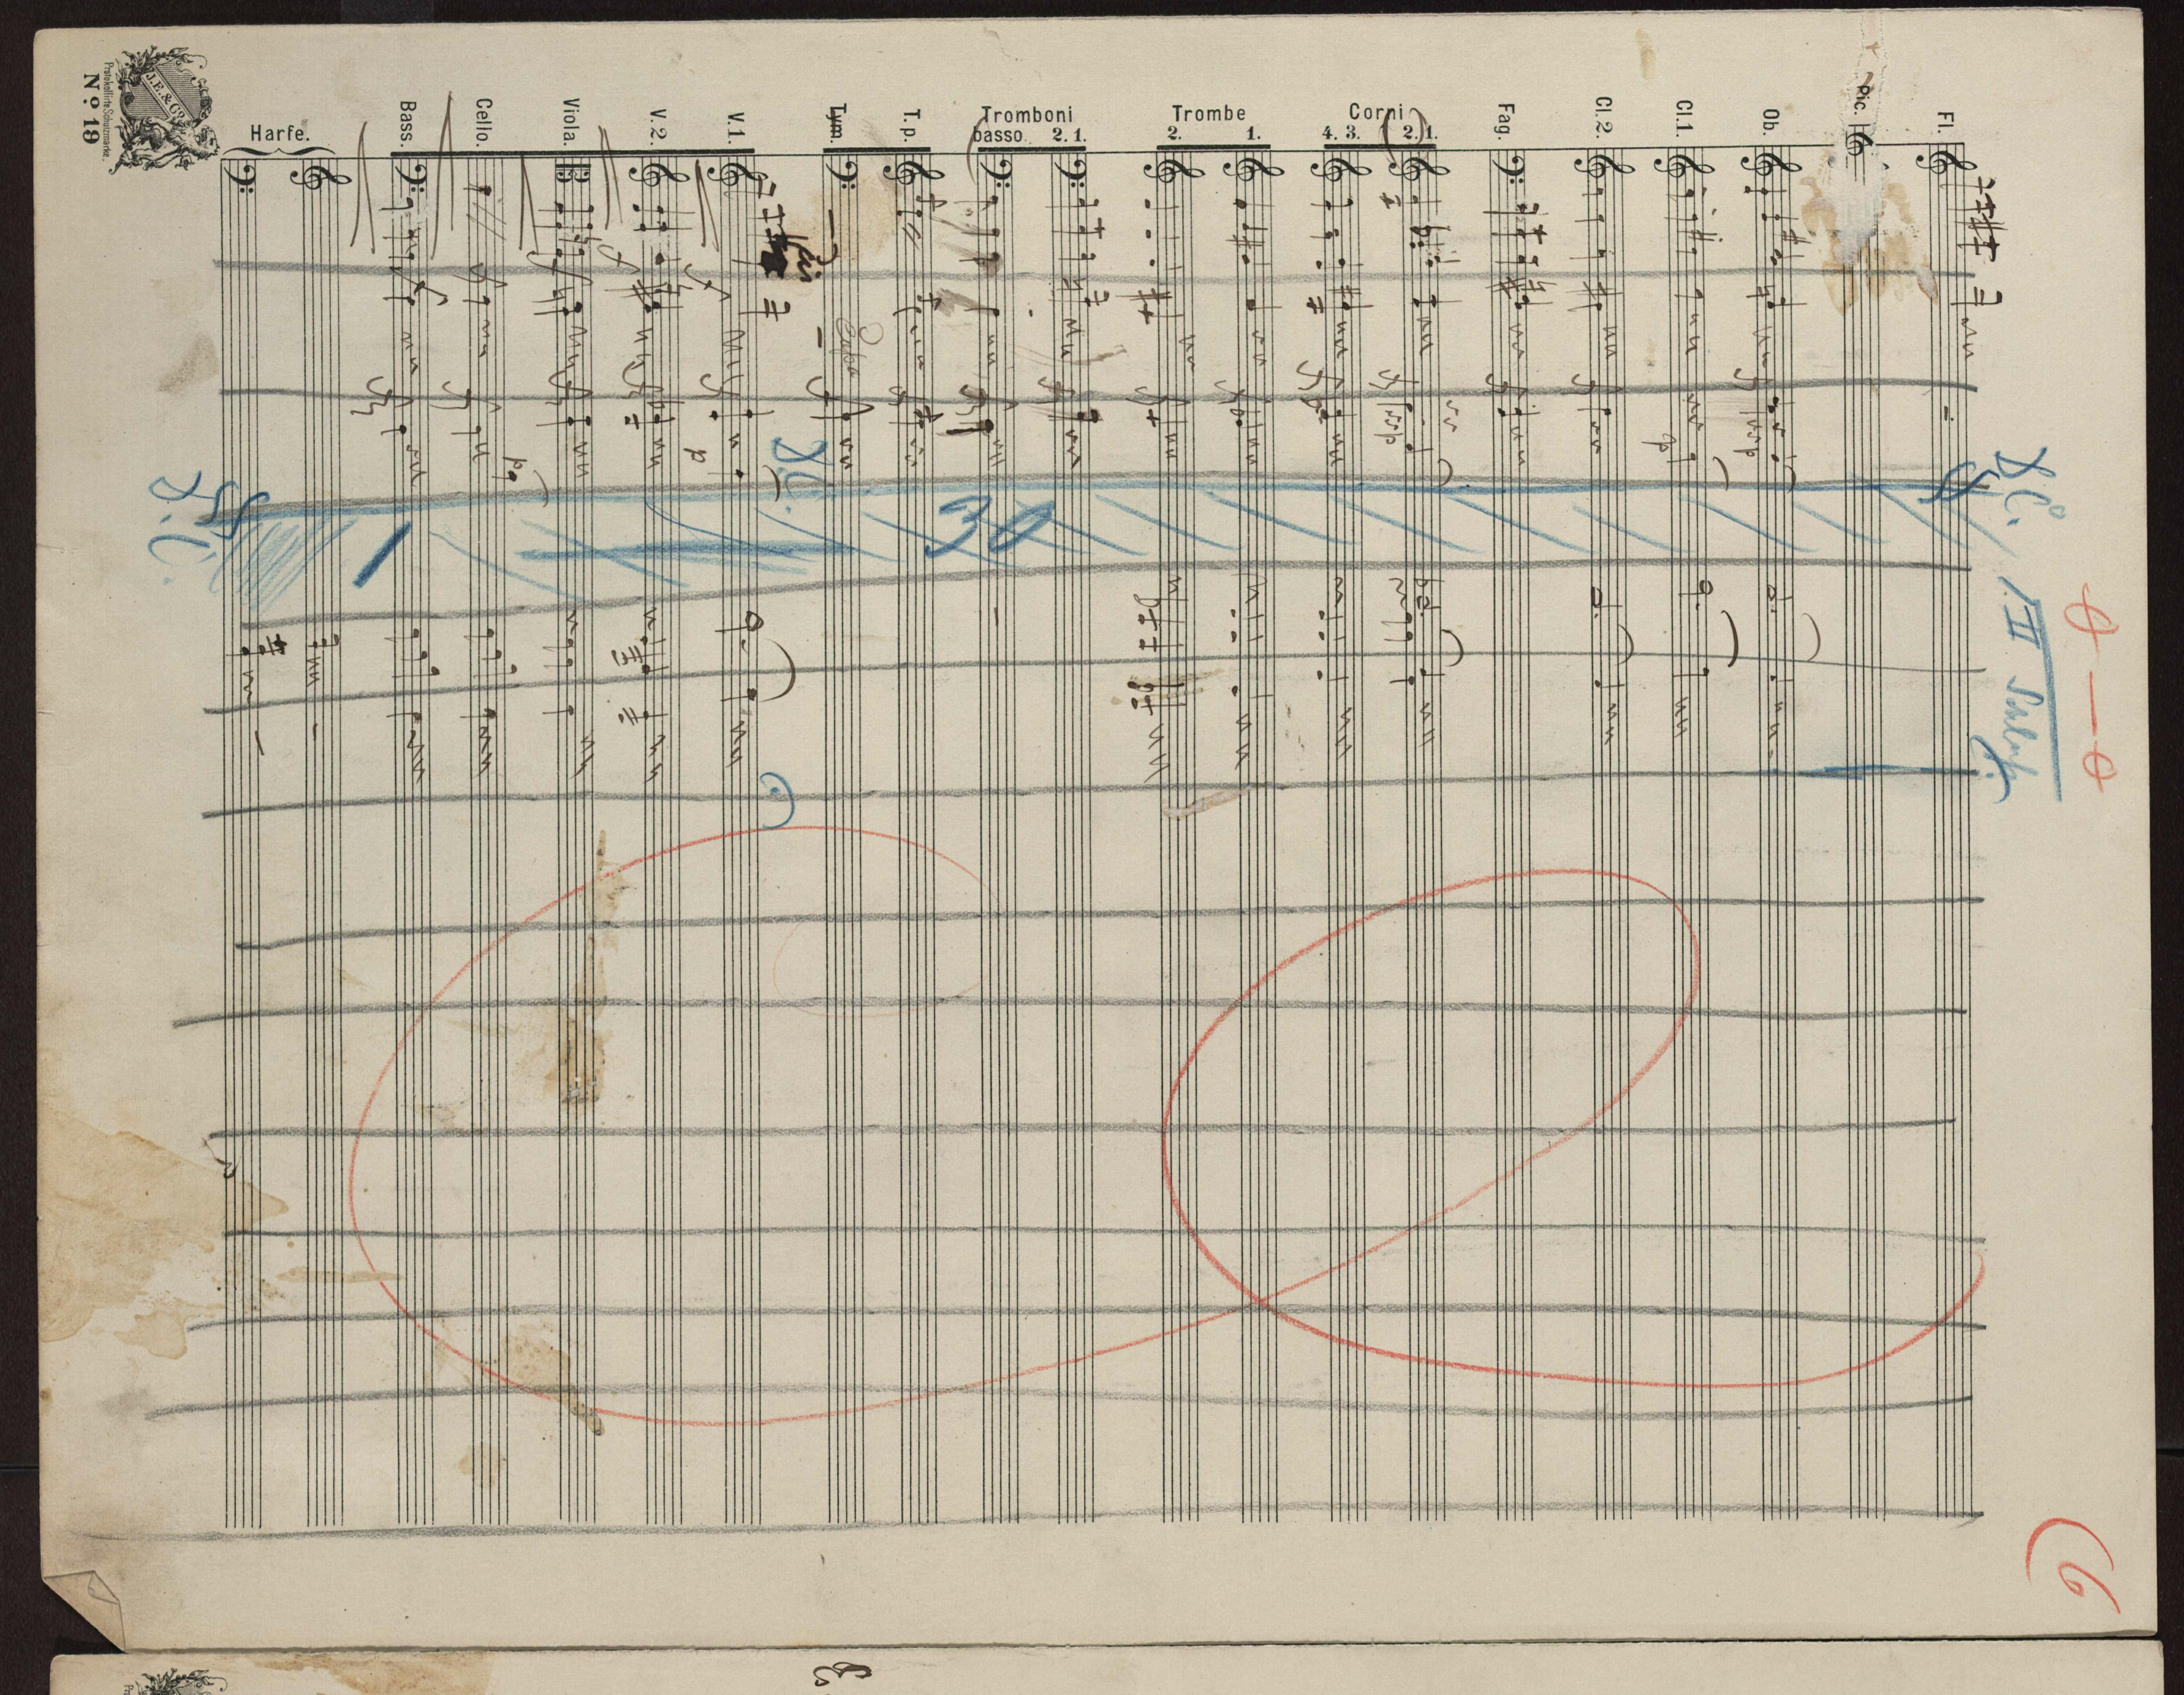 Fl.
Pic.
Ob.
Cl.1.
Cl.2.
Fag.
Corni
2.) 1.
4. 3.
Trombe
1.
2.
Tromboni
2. 1.
basso.
T. p.
Tym.
V. 1.
V. 2.
Viola.
Cello.
Bass.
Harfe.
J.E. & Co.
Protokollirte Schutzmarke.
No. 19
D.C.
II Schluß
D.C.
p
p
p
D.C.
1
30
(6